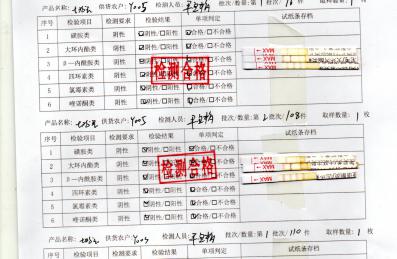 产品名称: 供货农户:Y005 检测人员: 批次/数量:第1批次/ 件 取样数量:1枚
序号 检验项目 检测要求 检验结果 单项判定 试纸条存档
1 磺胺类 阴性 ☑阴性/□阳性 ☑合格/□不合格
2 大环内酯类 阴性 ☑阴性/□阳性 ☑合格/□不合格
3 β一内酰胺类 阴性 ☑阴性/□阳性 ☑合格/□不合格
4 四环素类 阴性 ☑阴性/□阳性 ☑合格/□不合格
5 氯霉素类 阴性 ☑阴性/□阳性 ☑合格/□不合格
6 喹诺酮类 阴性 ☑阴性/□阳性 ☑合格/□不合格
检测合格
MAX
MAX
产品名称: 供货农户:Y005 检测人员: 批次/数量:第1批次/108件 取样数量:1枚
序号 检验项目 检测要求 检验结果 单项判定 试纸条存档
1 磺胺类 阴性 ☑阴性/□阳性 ☑合格/□不合格
2 大环内酯类 阴性 ☑阴性/□阳性 ☑合格/□不合格
3 β一内酰胺类 阴性 ☑阴性/□阳性 ☑合格/□不合格
4 四环素类 阴性 ☑阴性/□阳性 ☑合格/□不合格
5 氯霉素类 阴性 ☑阴性/□阳性 ☑合格/□不合格
6 喹诺酮类 阴性 ☑阴性/□阳性 ☑合格/□不合格
检测合格
MAX
MAX
产品名称: 供货农户:Y005 检测人员: 批次/数量:第1批次/110件 取样数量:1枚
序号 检验项目 检测要求 检验结果 单项判定 试纸条存档